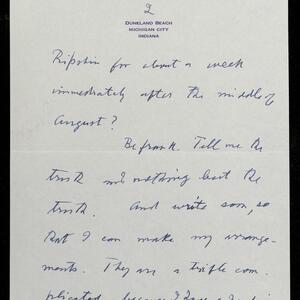 2
DUNELAND BEACH
MICHIGAN CITY
INDIANA
Ripshin for about a week
immediately after the middle of
August?
Be frank. Tell me the
truth and nothing but the
truth. And write soon, so
that I can make my arrange-
ments. They are a trifle com-
plicated, because I have